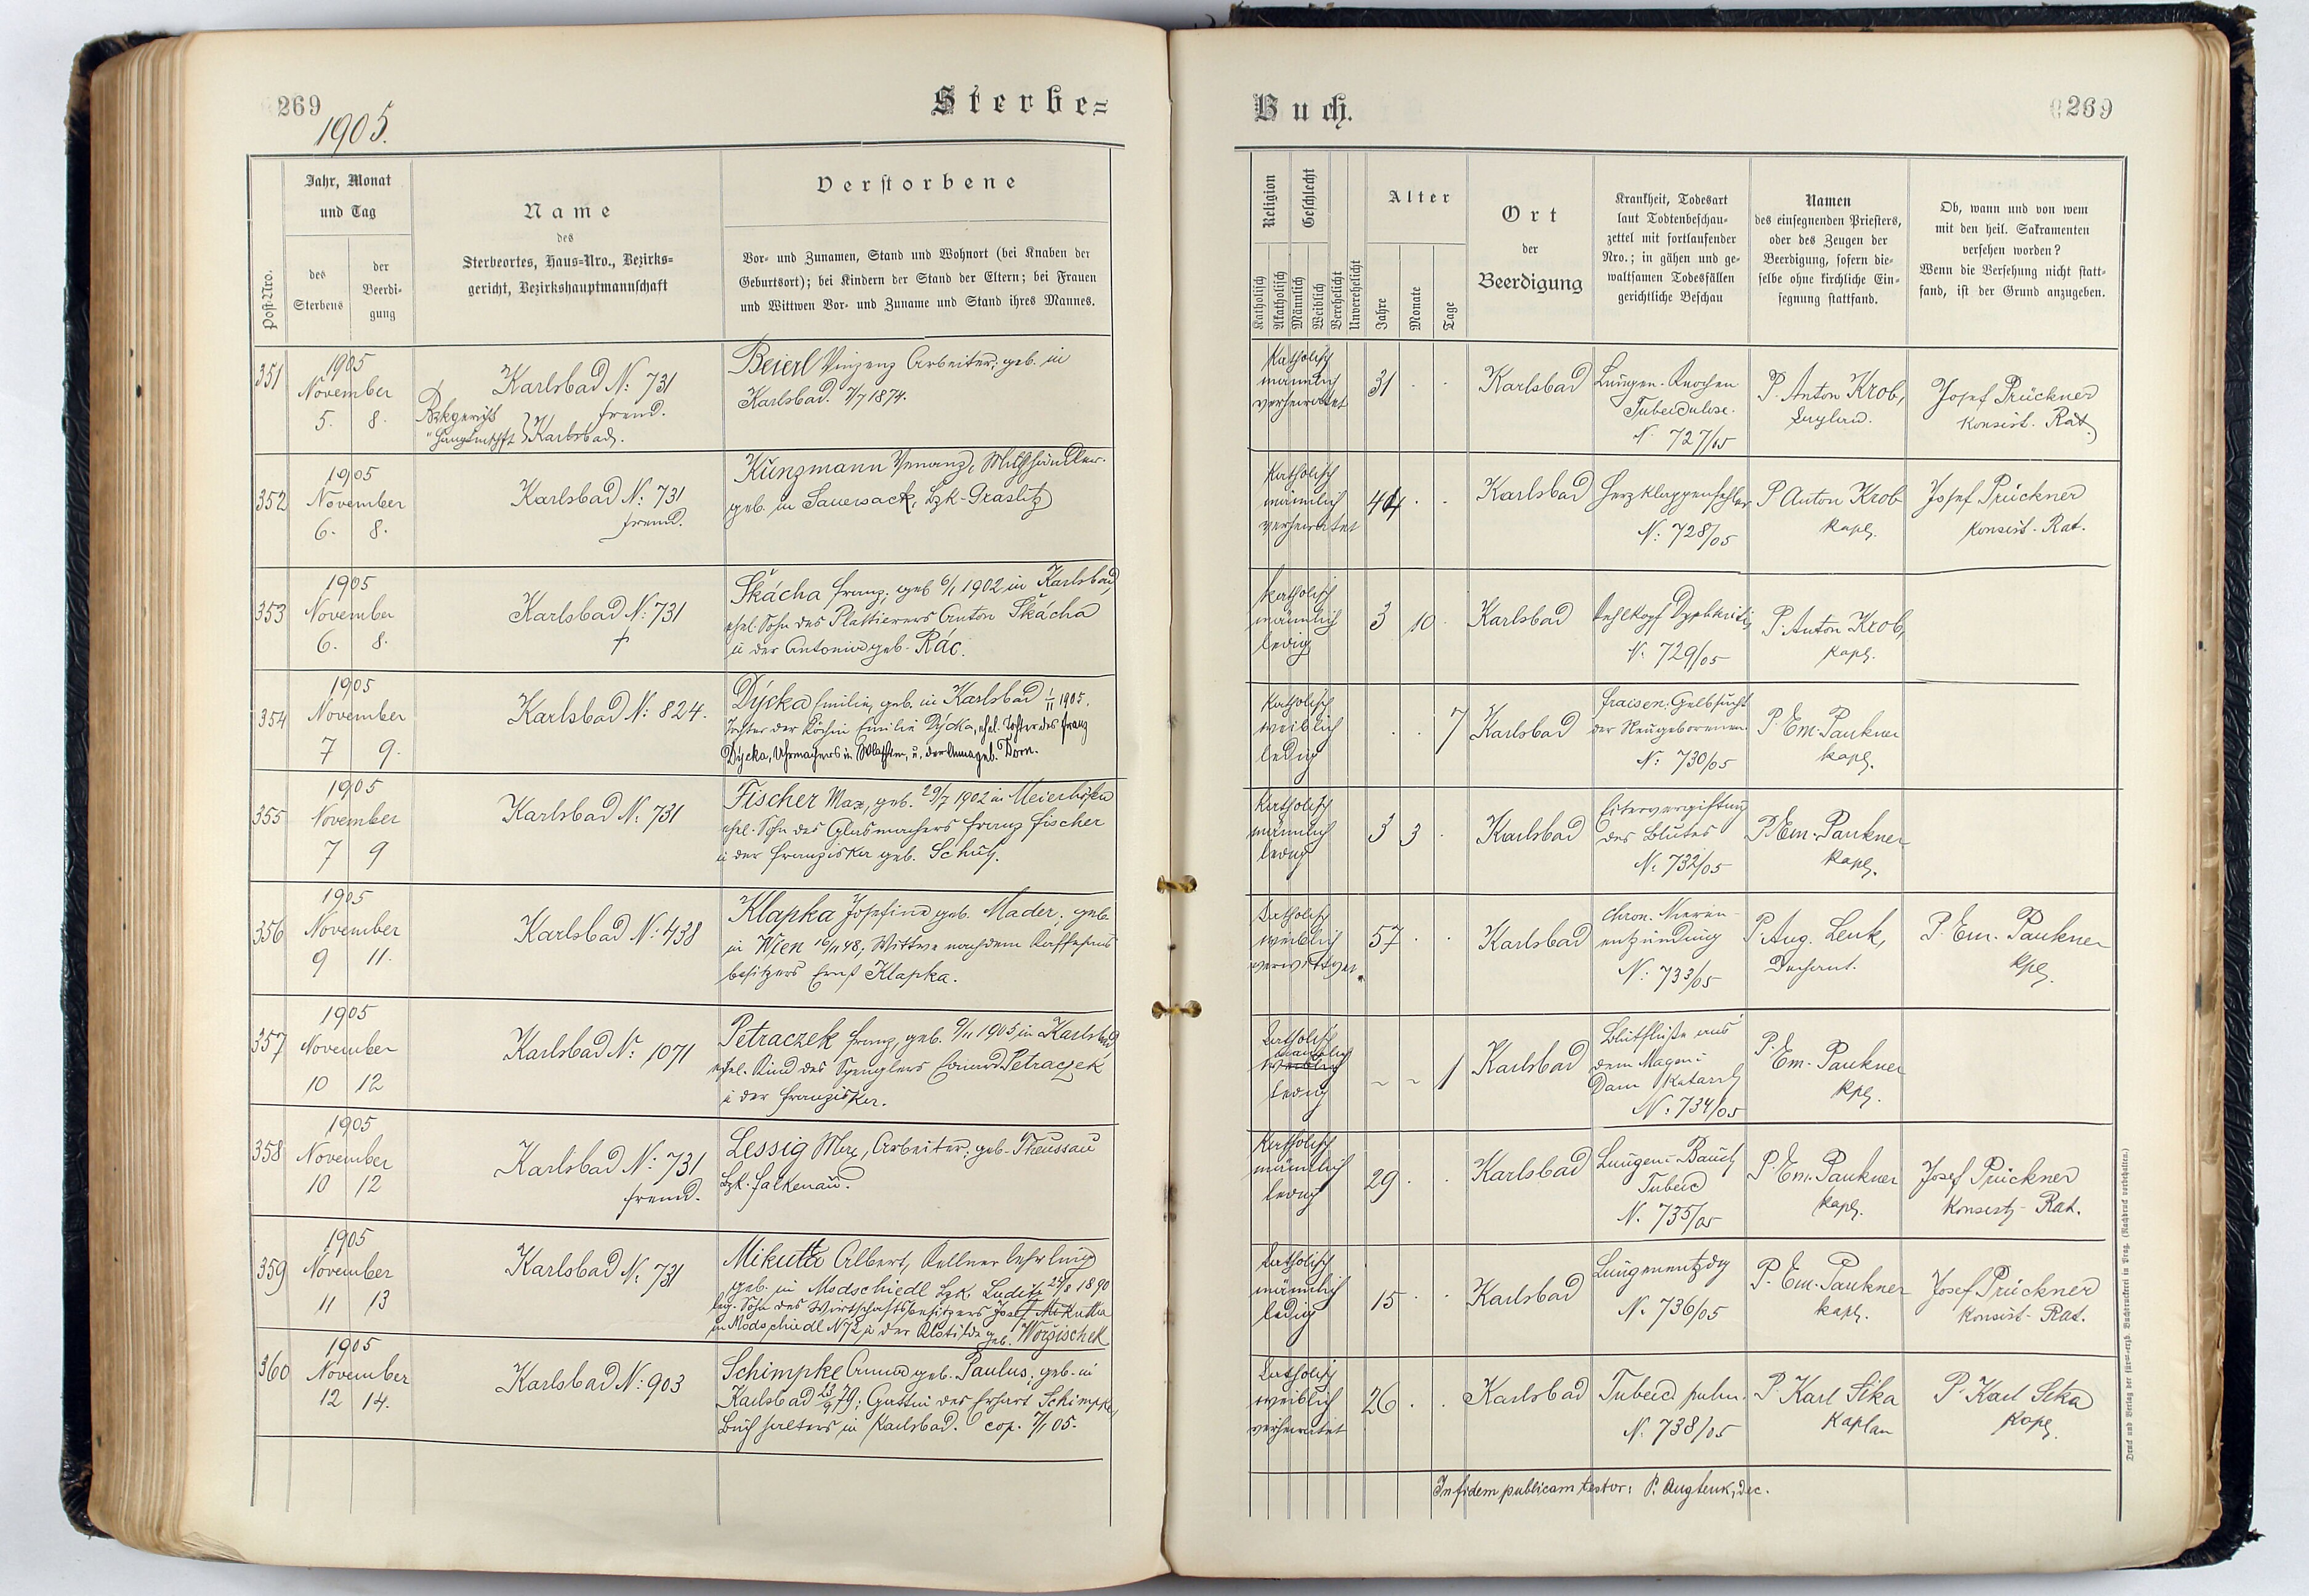 269
1905.
Sterbe=
Post-Nro.
Jahr, Monat
und Tag
des
Sterbens
der
Beerdi-
gung
Name
des
Sterbeortes, Haus-Nro., Bezirks=
gericht, Bezirkshauptmannschaft
Verstorbene
Vor- und Zunamen, Stand und Wohnort (bei Knaben der
Geburtsort); bei Kindern der Stand der Eltern; bei Frauen
und Wittwen Vor- und Zuname und Stand ihres Mannes.
351
1905
November
5. 8.
Karlsbad N: 731
fremd.
Bzkgericht
" Hauptmschft } Karlsbad.
Beierl Vinzenz Arbeiter, geb. in
Karlsbad. 7/7 1874.
352
1905
November
6. 8.
Karlsbad N: 731
fremd.
Künzmann Venanz, Milchhändler.
geb. in Sauersack, Bzk-Graslitz
353
1905
November
6. 8.
Karlsbad N: 731
+
Škácha Franz, geb 6/1 1902 in Karlsbad,
ehel. Sohn des Plattierers Anton Škácha
ü der Antonia geb. Rác.
354
1905
November
7 9.
Karlsbad N: 824.
Dýcka Emilie, geb. in Karlsbad 1/11 1905.
Tochter der Köchin Emilie Dýcka, ehel. Tochter des Franz
Dýcka, Uhrmachers in Wlaschim, u. der Anna geb. Dorn.
355
1905
November
7 9
Karlsbad N: 731
Fischer Max, geb. 29/7 1902 in Meierhöfen
ehel. Sohn des Glasmachers Franz Fischer
ü der Franziska geb. Schuh.
356
1905
November
9 11.
Karlsbad N: 438
Klapka Josefina geb. Mader, geb.
in Wien 16/11 48; Wittwe nach dem Kaffeehaus
besitzers Ernst Klapka.
357
1905
November
10 12
Karlsbad N: 1071
Petraczek Franz, geb. 9/11 1905 in Karlsbad
ehel. Kind des Spenglers Petraczek
ü der Franziska.
358
1905
November
10 12
Karlsbad N: 731
fremd.
Lessig Max, Arbeiter, geb. Theussau
Bzk. Falkenau.
359
1905
November
11 13
Karlsbad N: 731
Mikutta Albert, Kellnerlehrling
geb. in Modschiedl Bzk. Luditz 24/8 1890
leg. Sohn des Wirtschaftsbesitzers Josef Mikutta
in Modschiedl N 72 ü der Klotilde geb. Worzischek
360
1905
November
12 14.
Karlsbad N: 903
Schimpke Anna geb. Paulus, geb. in
Karlsbad 13/9 79; Gattin des Erhart Schimpke,
Buchhalters in Karlsbad. cop. 7/1 05.
Buch.
269
Religion
Geschlecht
Katholisch
Akatholisch
Männlich
Weiblich
Verehelicht
Unverehelicht
Alter
Jahre
Monate
Tage
Ort
der
Beerdigung
Krankheit, Todesart
laut Todtenbeschau-
zettel mit fortlaufender
Nro.; in gähen und ge-
waltsamen Todesfällen
gerichtliche Beschau
Namen
des einsegnenden Priesters,
oder des Zeugen der
Beerdigung, sofern die-
selbe ohne kirchliche Ein-
segnung stattfand.
Ob, wann und von wem
mit den heil. Sakramenten
versehen worden?
Wenn die Versehung nicht statt-
fand, ist der Grund anzugeben.
Katholisch
männlich
verheiratet
31 . .
Karlsbad
Lungen-Knochen
Tuberculose.
N: 727/05
P. Anton Krob,
Kaplan.
Josef Prückner
Konsist. Rat.
Katholisch
männlich
verheiratet
44 . .
Karlsbad
Herzklappenfehler
N: 728/05
P Anton Krob
Kapl.
Josef Prückner
Konsist. Rat.
Katholisch
männlich
ledig
3 10 .
Karlsbad
Kehlkopf Dyphteritis
N. 729/05
P. Anton Krob,
Kapl.
Katholisch
weiblich
ledig
. . 7
Karlsbad
Fraisen, Gelbsucht
der Neugeborenen.
N: 730/05
P. Em. Paukner
Kapl.
Katholisch
männlich
ledig
3 3 .
Karlsbad
Eitervergiftung
des Blutes
N: 732/05
P. Em. Paukner
Kapl.
Katholisch
weiblich
verwittwet.
57 . .
Karlsbad
Chron. Nieren-
entzündung
N: 733/05
P. Aug. Lenk,
Dechant.
P. Em. Paukner
Kpl.
Katholisch
männlich
weiblich
ledig
~ ~ 1
Karlsbad
Blutfluße aus
dem Magen ü
Darm Katarrh
N. 734/05
P. Em. Paukner
Kpl.
Katholisch
männlich
ledig
29 . .
Karlsbad
Lungen ü Bauch
Tuberc
N. 735/05
P. Em. Paukner
Kapl.
Josef Prückner
Konsist. Rat.
Katholisch
männlich
ledig
15 . .
Karlsbad
Lungenentzdg
N. 736/05
P. Em. Paukner
Kapl.
Josef Prückner
Konsist. Rat.
Katholisch
weiblich
verheiratet
26 . .
Karlsbad
Tuberc. pulm.
N. 738/05
P. Karl Sika
Kaplan
P. Karl Sika
Kapl.
In fidem publicam testor: P. Aug Lenk, Dec.
Druck und Verlag der fürst-erzb. Buchdruckerei in Prag. (Nachdruck vorbehalten.)